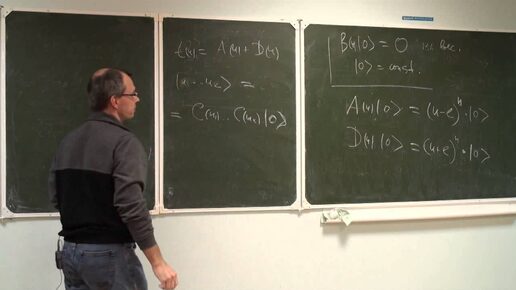 t(u) = A(u) + D(u)
|u₁...u₂> =
= C(u₁)...C(u₂)|0>
B(u)|0> = 0
|0> = const.
A(u)|0> = (u-c)ᴺ·|0>
D(u)|0> = (u+c)ᴺ·|0>